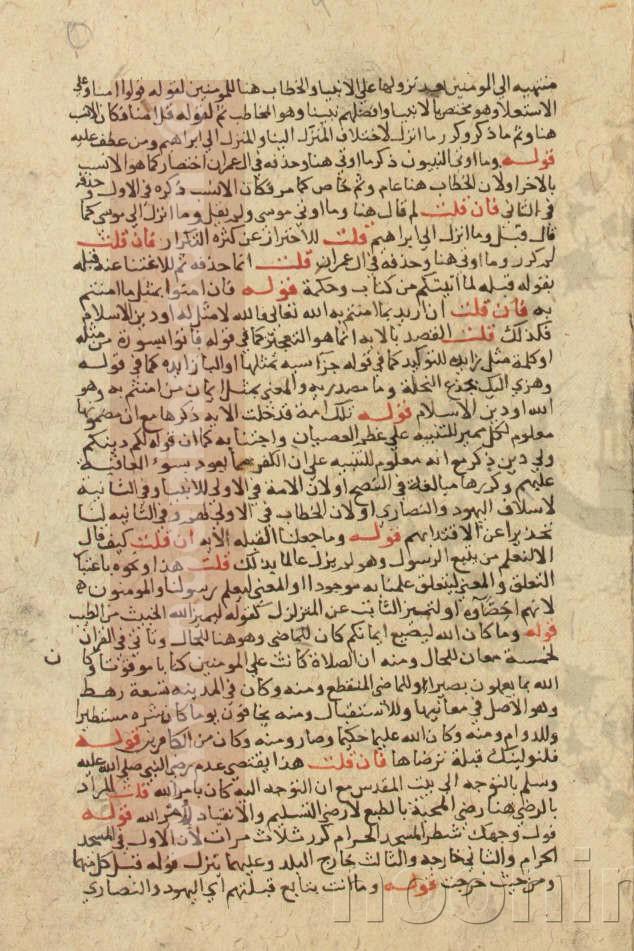 منتهية الى المومنين بعد نزولها على الانبيا والخطاب هنا للمومنين لقوله قولوا امنا وعلى
الاستعلا وهو مختص بالانبيا وافضلهم نبينا وهو المخاطب ثم لقوله قل امنا فكان الانسب
هنا وثم ما ذكر وكرر ما انزل لاختلاف المنزل الينا والمنزل الى ابراهيم ومن عطف عليه
قوله وما اوتى النبيون ذكر ما اوتى هنا وحذفه في ال عمران اختصارا كما هو الانسب
بالاخر اولان الخطاب هنا عام وثم خاص كما مر فكان الانسب ذكره في الاول وحذفه
في الثاني فان قلت لم قال هنا وما اوتى موسى ولم يقل وما انزل الى موسى كما
قال قبل وما انزل الى ابراهيم قلت للاحتراز عن كثرة التكرار فان قلت
لم كرر وما اوتى هنا وحذفه في ال عمران قلت انما حذفه ثم للاغتنا عنه قبله
بقوله قبله لما اتيتكم من كتاب وحكمة قوله فان امنوا بمثل ما امنتم
به فان قلت ان اريد بما امنتم به الله تعالى فالله لا مثل له او دين الاسلام
فكذلك قلت القصد بالاية انما هو التعجيز كما في قوله فاتوا بسورة من مثله
او كلمة مثل زايدة للتوكيد كما في قوله جزآ سيية بمثلها او البا زايدة كما في قوله
وهزي اليك بجذع النخلة وما مصدرية والمعنى بمثل ايمان من امنتم به وهو
الله او دين الاسلام قوله تلك امة قد خلت الاية ذكرها مع ان مضمونها
معلوم لكل مميز للتنبيه على عظم العصيان واجتنابه كما ان قوله لكم دينكم
ولي دين ذكر مع انه معلوم للتنبيه على ان الكفر مما يعود بسوء العاقبة
عليهم وكررها مبالغة في النصح اولان الامة في الاولى للانبيا وفي الثانية
لاسلاف اليهود والنصارى اولان الخطاب في الاولى لهم وفي الثانية لنا
تحذيرا عن الاقتدا بهم قوله وما جعلنا القبلة الاية ان قلت كيف قال
الا لنعلم من يتبع الرسول وهو لم يزل عالما بذلك قلت هذا ونحوه باعتبار
التعلق والمعنى ليتعلق علمنا به موجودا او المعنى ليعلم رسولنا والمومنون
لانهم اخصاوه او لنميز الثابت عن المتزلزل كقوله ليميز الله الخبيث من الطيب
قوله وما كان الله ليضيع ايمانكم كان للماضي وهو هنا للحال وتاتي في القران
لخمسة معان للحال ومنه ان الصلاة كانت على المومنين كتابا موقوتا وكان
الله بما يعلمون بصيرا وللماضي المنقطع ومنه وكان في المدينة تسعة رهط
وهو الاصل في معانيها وللاستقبال ومنه يخافون يوما كان شره مستطيرا
وللدوام ومنه وكان الله عليما حكيما وصار ومنه وكان من الكافرين قوله
فلنولينك قبلة ترضاها فان قلت هذا يقتضي عدم رضى النبي صلى الله عليه
وسلم بالتوجه الى بيت المقدس مع ان التوجه اليه كان بامر الله قلت المراد
بالرضى هنا رضى المحبة بالطبع لا رضى التسليم والانقياد لامر الله قوله
فول وجهك شطر المسجد الحرام كرر ثلاث مرات لان الاول في المسجد
الحرام والثاني خارجه والثالث خارج البلد وعليهما ينزل قوله قبل كل منهما
ومن حيث خرجت قوله وما انت بتابع قبلتهم اي اليهود والنصارى
noorlib